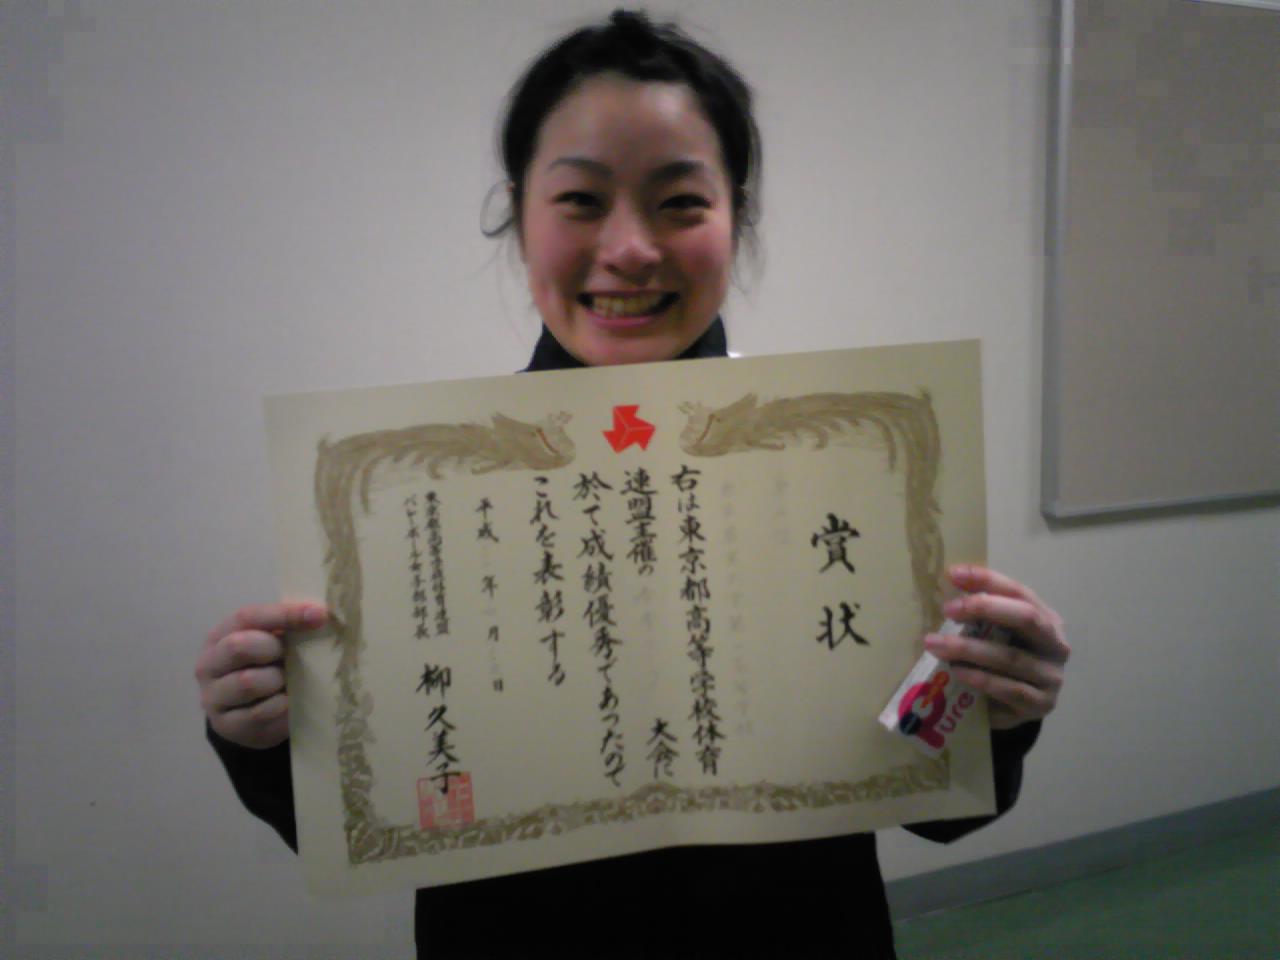 賞状
右は東京都高等学校体育
連盟主催の 大会に
於て成績優秀であったので
これを表彰する
平成 年 月 日
東京都高等学校体育連盟
バレーボール女子部部長
柳久美子
Pure